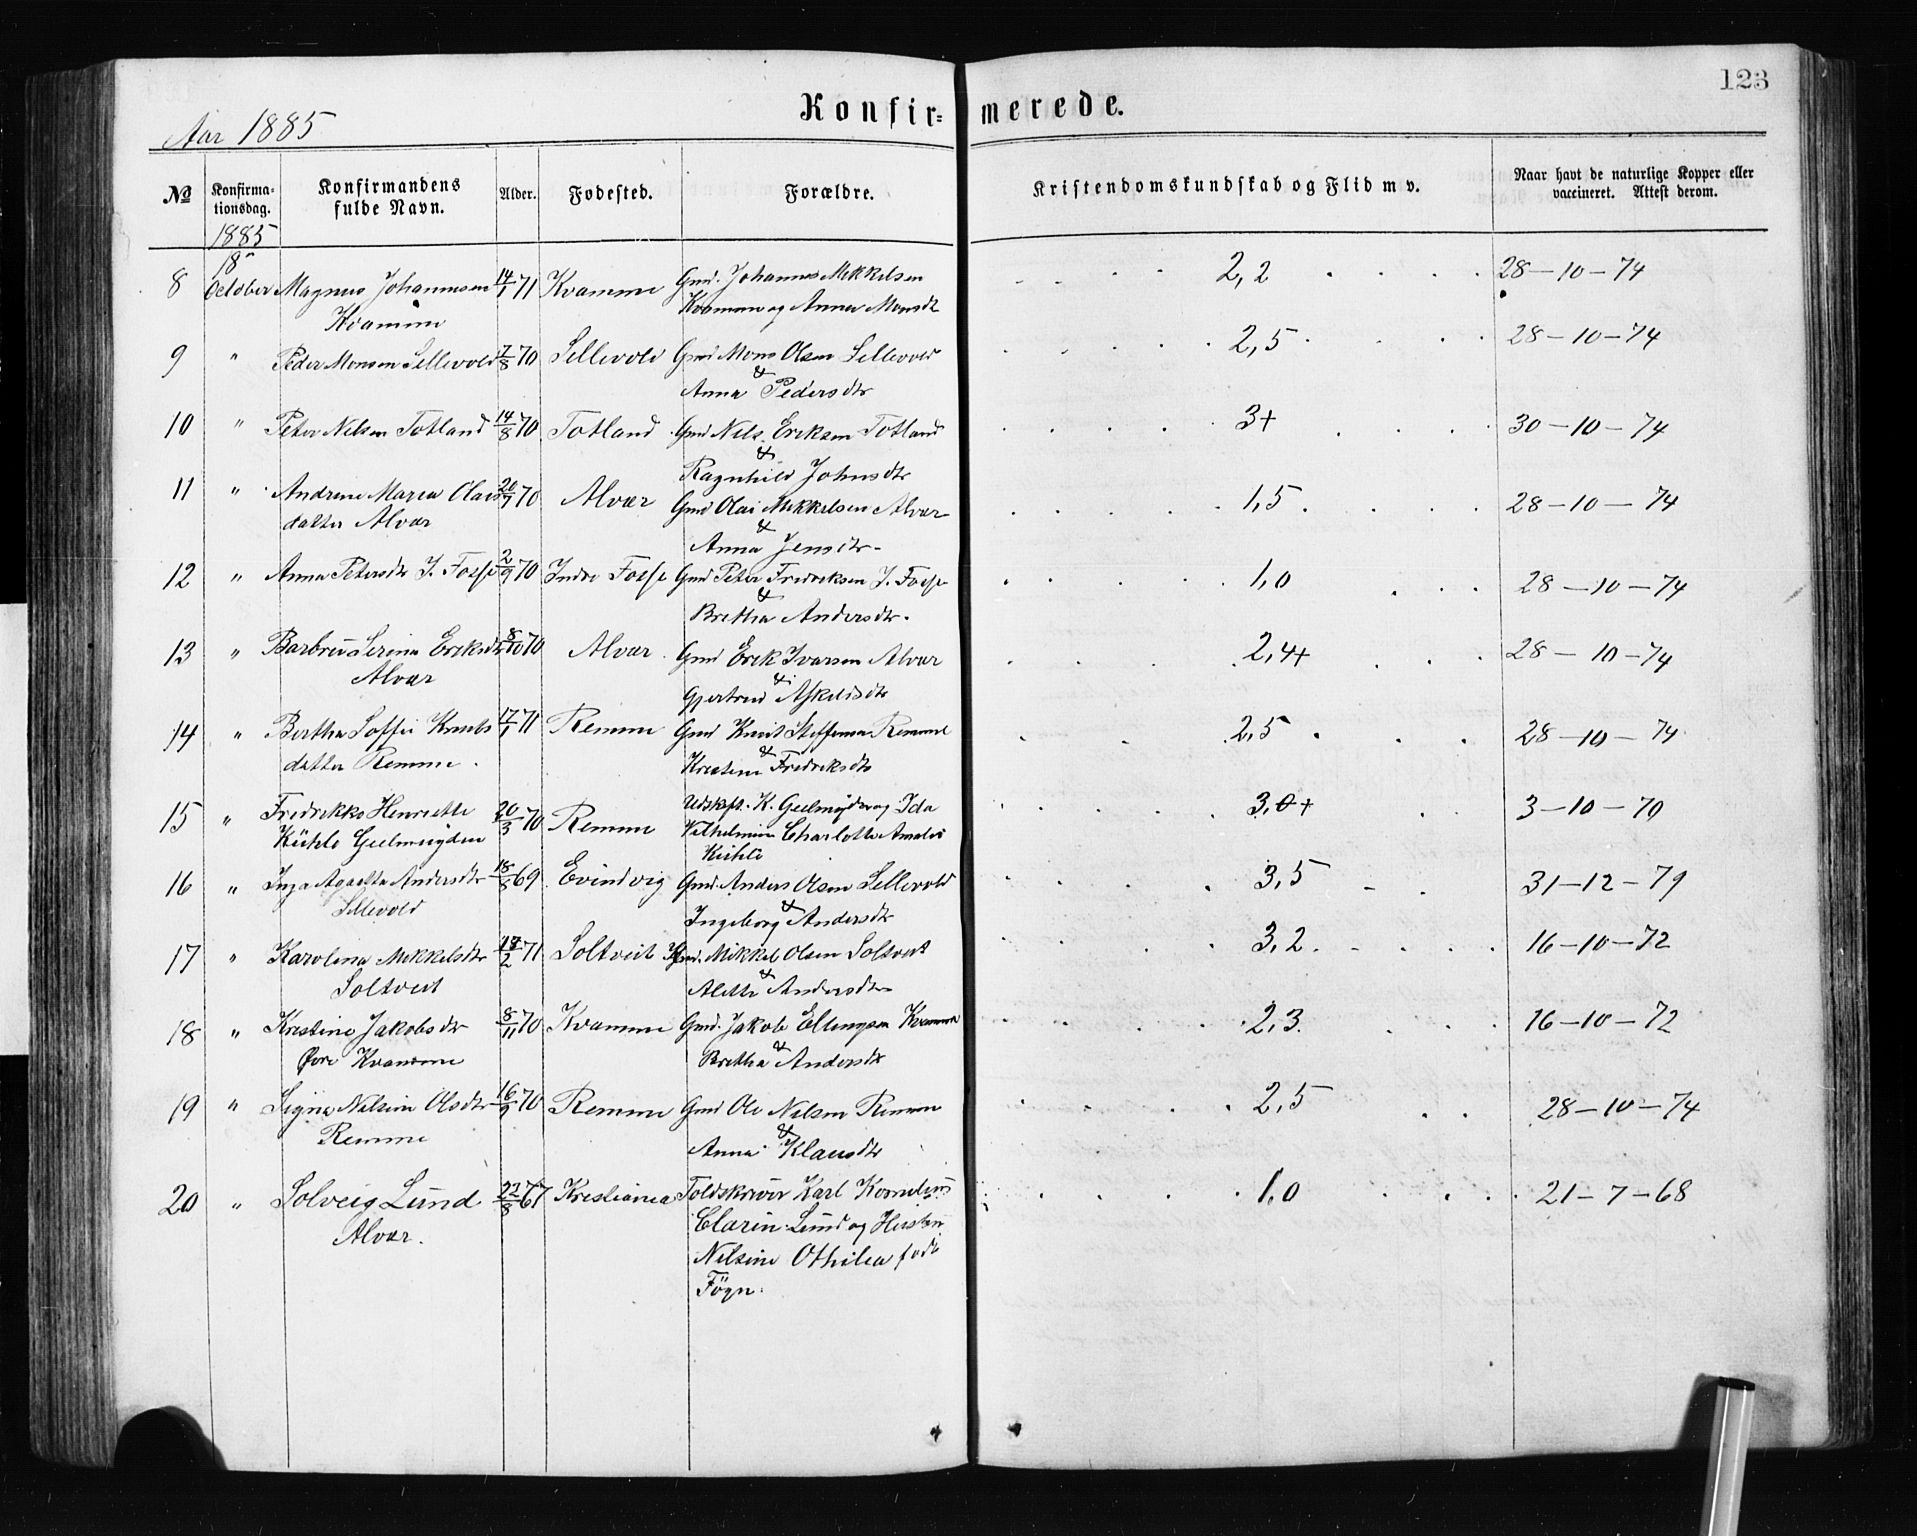 123
Aar 1885
Konfir= merede.
№ Konfirma-tionsdag. Konfirmandens fulde Navn. Alder. Fødested. Forældre. Kristendomskundskab og Flid m v. Naar havt de naturlige Kopper eller vaccineret. Attest derom.
1885
18de
8 October Magnus Johannesen 14/1 71 Kvamme Gmd. Johannes Mikkelsen 2,2 28-10-74
Kvamme Kvamme og Anna Monsdtr
9 " Peder Monsen Sellevold 7/8 70 Sellevold Gmd Mons Olsen Sellevold 2,5 28-10-74
& Anna Pedersdtr
10 " Peter Nilsen Totland 14/8 70 Totland Gmd Nils Eriksen Totland 3+ 30-10-74
& Ragnhild Johnsdtr
11 " Andrine Maria Olais 20/7 70 Alvær Gmd Olai Mikkelsen Alvær 1,5 28-10-74
datter Alvær & Anna Jensdtr
12 " Anna Petersdtr I. Fosse 2/9 70 Indre Fosse Gmd Peter Fredriksen I. Fosse 1,0 28-10-74
& Bretha Andersdtr.
13 " Barbru Serina Eriksdtr 8/10 70 Alvær Gmd Erik Ivarsen Alvær 2,4+ 28-10-74
Alvær Gjertrud & Askelsdtr
14 " Bertha Soffie Knuds 17/1 71 Remme Gmd Knut Steffensen Remme 2,5 28-10-74
datter Remme. Kristine & Fredriksdtr
15 " Fredrikke Henriette 20/3 70 Remme Udskft. K. Geelmuyden og Ida 3,0+ 3-10-70
Kühle Geelmuyden Vilhelmine Charlotte Amalie
Kühle
16 " Inga Agathe Andersdtr 18/8 69 Evindvig Gmd. Anders Olsen Sellevold 3,5 31-12-79
Sellevold Ingeborg & Andersdtr
17 " Karolina Mikkelsdtr /2 71 Soltveit Gmd. Mikkel Olsen Soltveit 3,2 16-10-72
Soltveit Alethe & Andersdtr
18 " Kristine Jakobsdtr 8/11 70 Kvamme Gmd. Jakob Ellingsen Kvamme 2,3 16-10-72
Øvre Kvamme Bretha & Andersdtr
19 " Signe Nilsine Olsdtr 16/9 70 Remme Gmd Ole Nilsen Remme 2,5 28-10-74
Remme Anna & Klausdtr
20 " Solveig Lund 22/8 67 Kristiania Toldskriver Karl Kornelius 1,0 21-7-68
Alvær. Clarin Lund og
Nilsine Othilia født
Föyn.